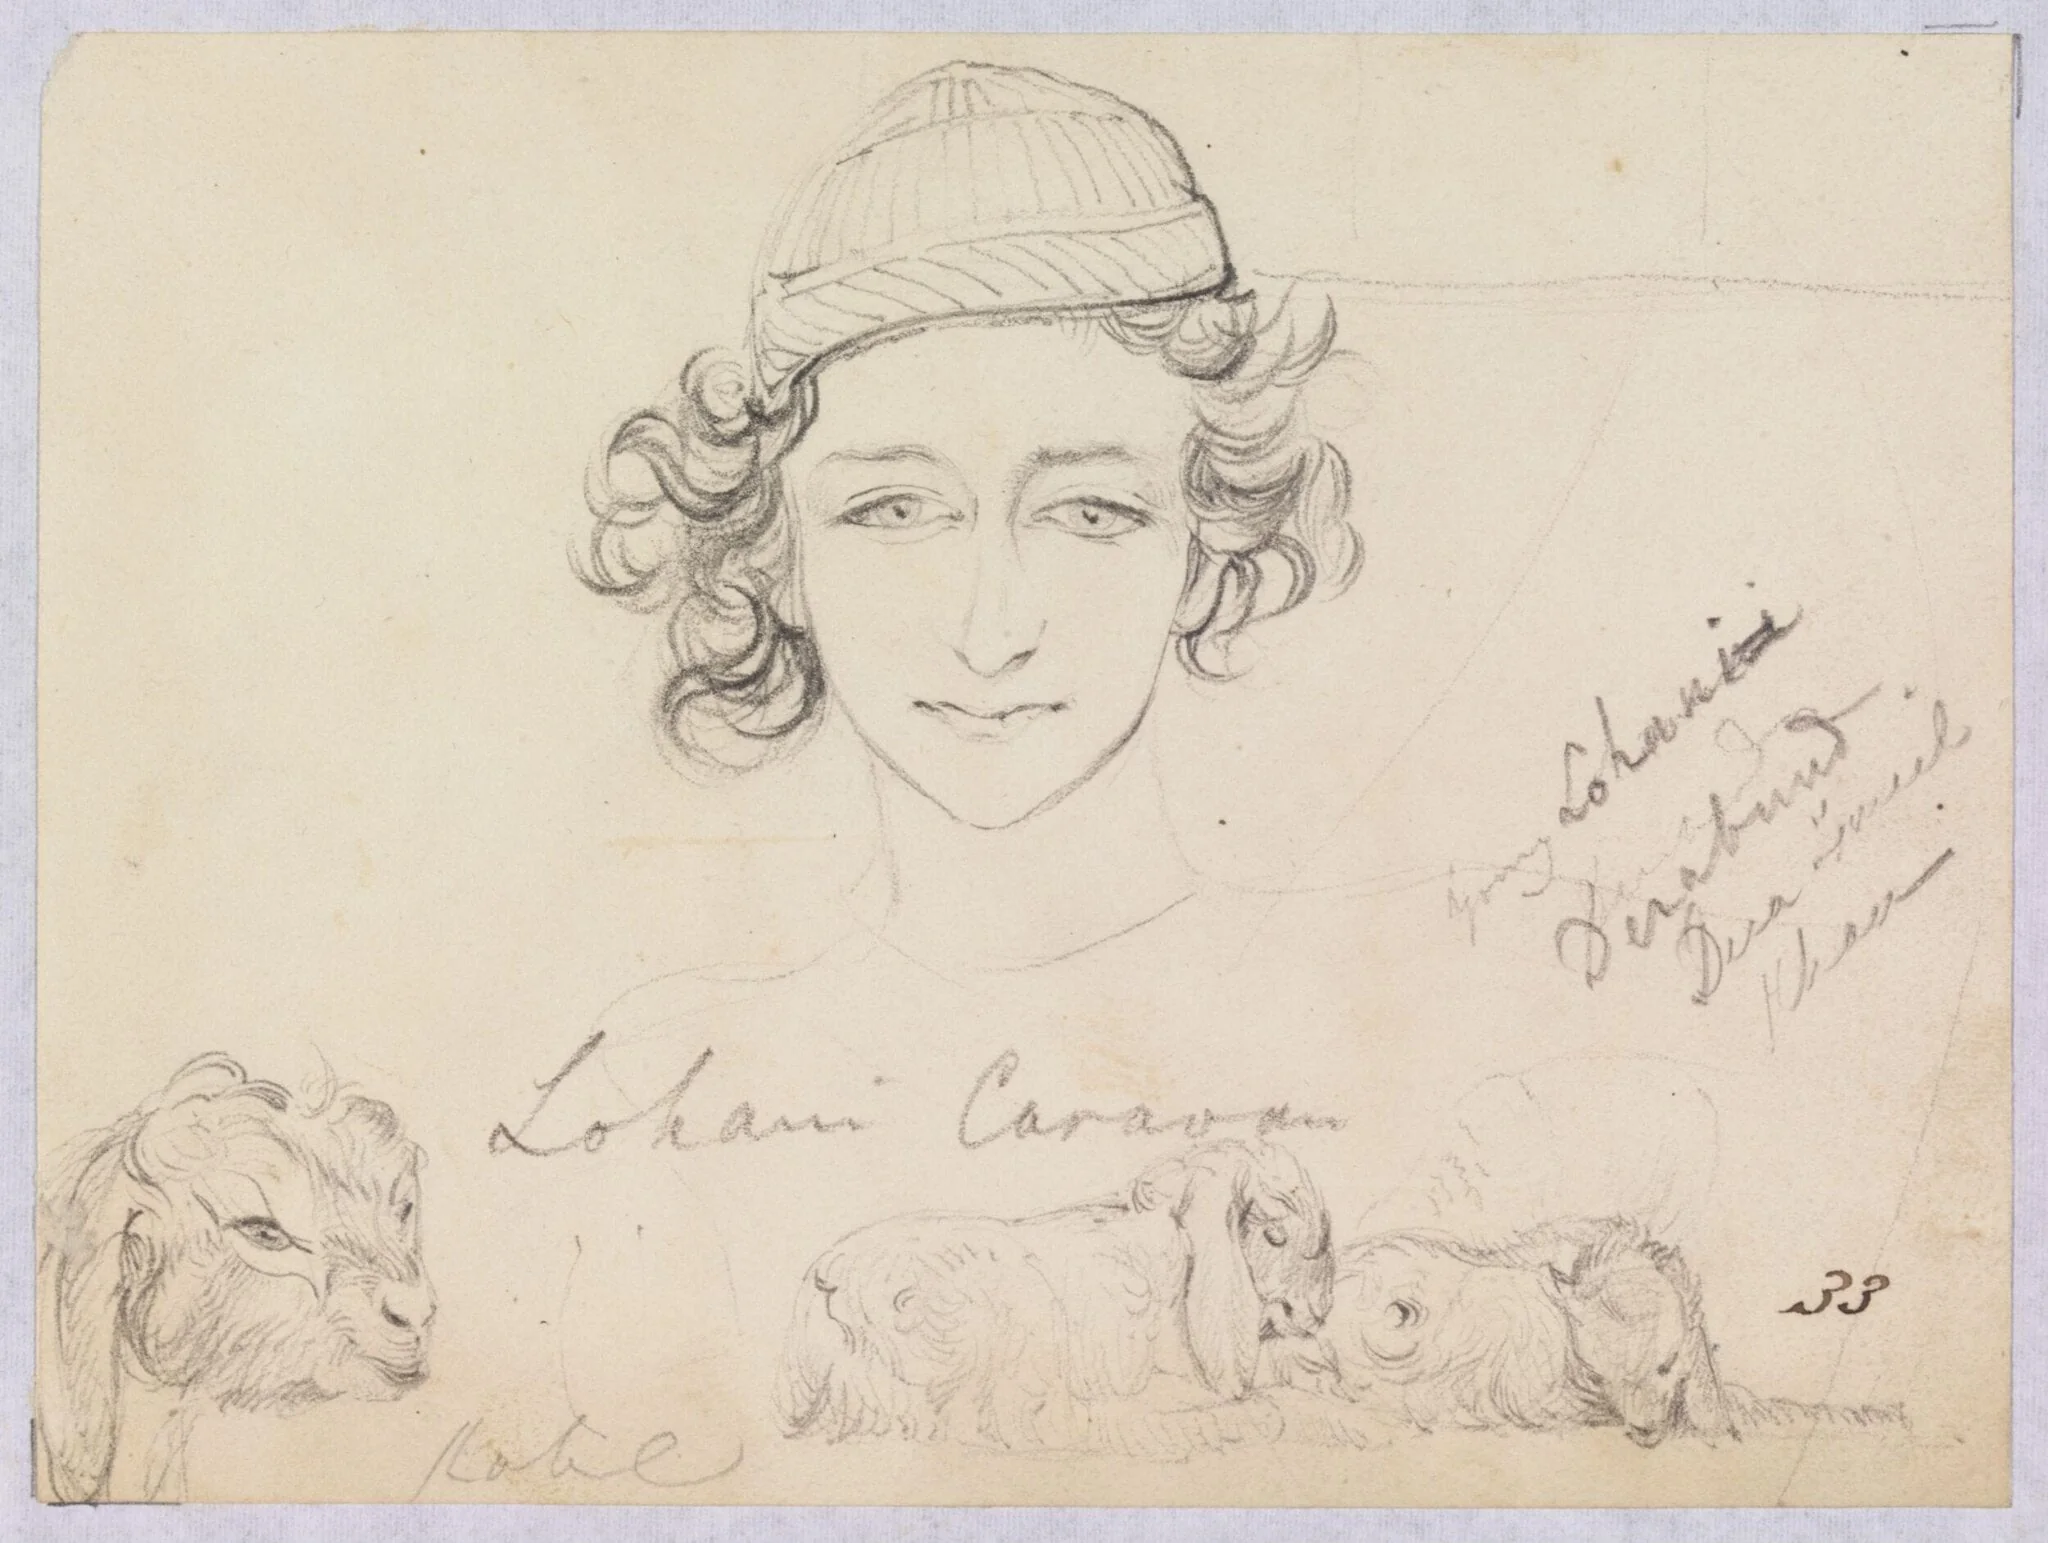 young Lohani
Derabund
Dera Ismeil
Khan
Lohani Caravan
33
Kabul